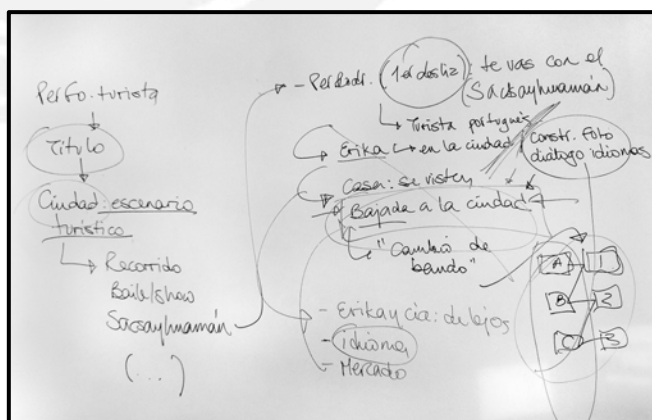 Perfo. turista
Título
Ciudad: escenario
turístico
Recorrido
Baile/show
Sacsayhuamán
(...)
- Perdedr. 1er desliz: te vas con el
(Sacsayhuamán)
Turista portugués
Erika en la ciudad
Constr. foto
diálogo idiomas
Casa: se visten
Bajada a la ciudad
"Cambio de
bando"
A 1
B 2
C 3
- Erika y cía: de lejos
- idioma
- Mercado